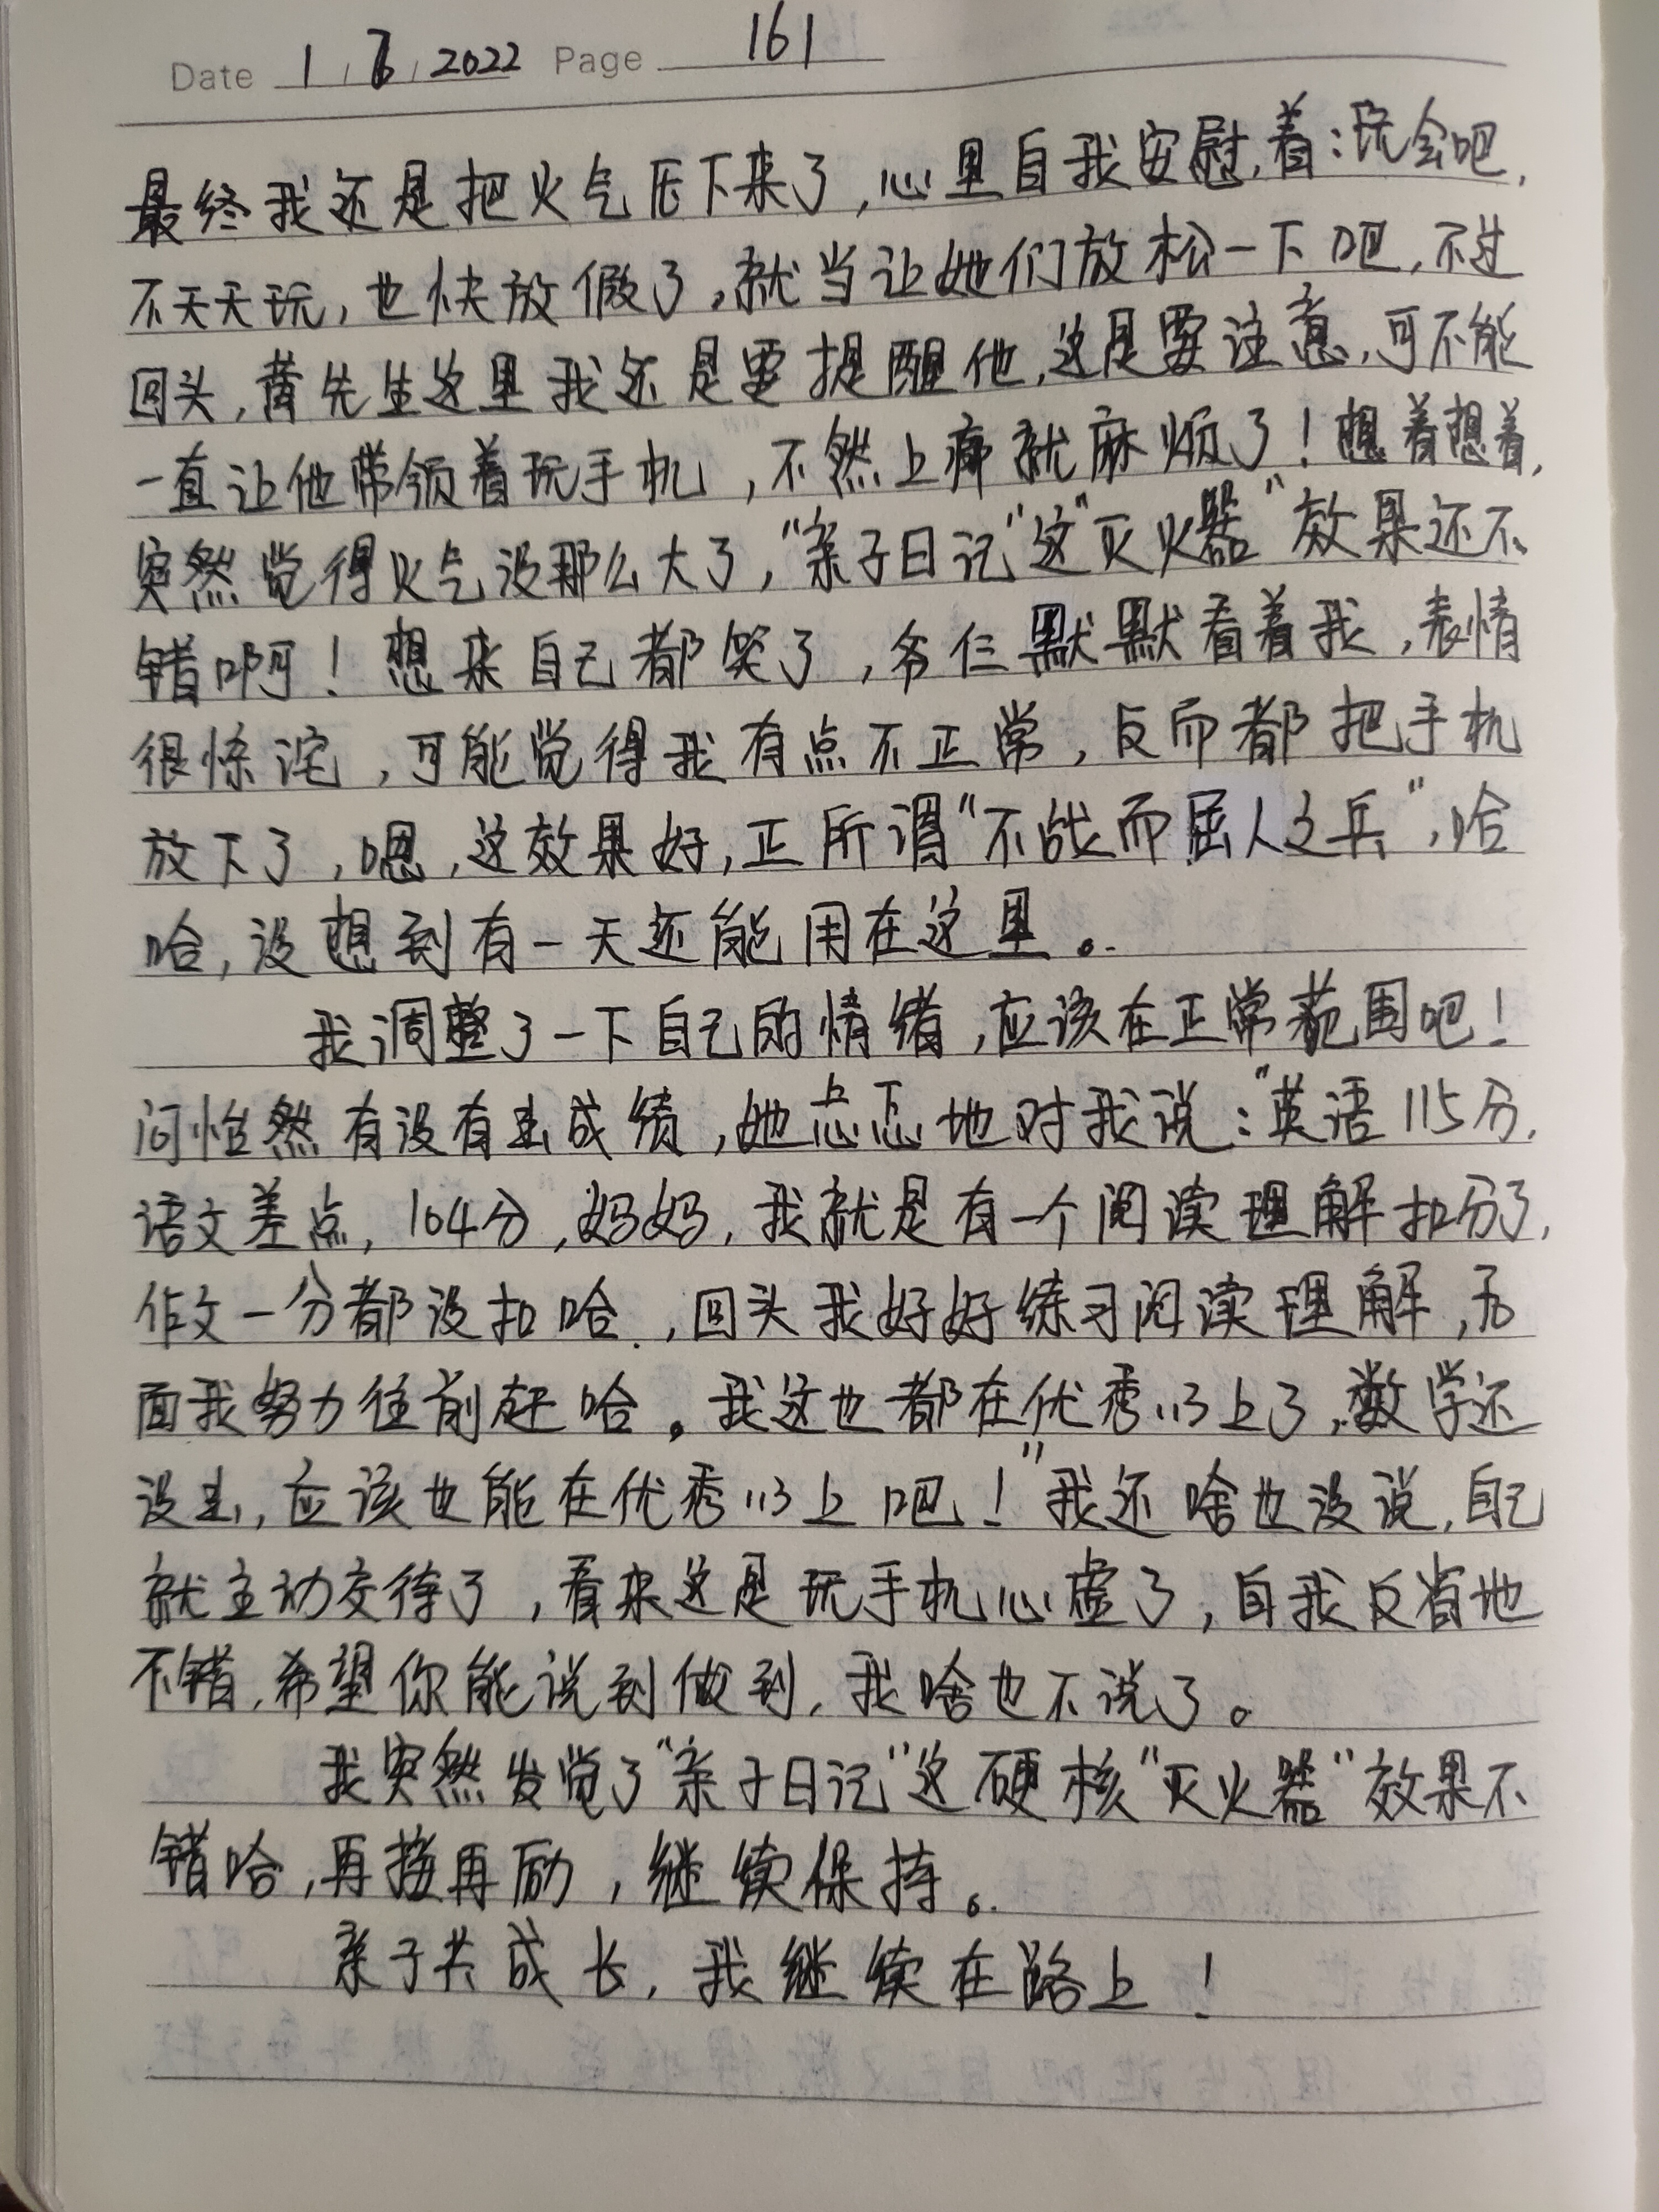 Date 1 / 7 / 2022 Page 161
最终我还是把火气压下来了,心里自我安慰着:玩会吧,
不天天玩,也快放假了,就当让她们放松一下吧,不过
回头,黄先生这里我还是要提醒他,这是要注意,可不能
一直让他带领着玩手机,不然上瘾就麻烦了!想着想着,
突然觉得火气没那么大了,“亲子日记”这“灭火器”效果还不
错啊!想来自己都笑了,爷仨默默看着我,表情
很惊诧,可能觉得我有点不正常,反而都把手机
放下了,嗯,这效果好,正所谓“不战而屈人之兵”,哈
哈,没想到有一天还能用在这里。
我调整了一下自己的情绪,应该在正常范围吧!
问怡然有没有出成绩,她忐忑地对我说:“英语115分,
语文差点,104分,妈妈,我就是有一个阅读理解扣分了,
作文一分都没扣哈,回头我好好练习阅读理解,后
面我努力往前赶哈。我这也都在优秀以上了,数学还
没出,应该也能在优秀以上吧!”我还啥也没说,自己
就主动交待了,看来这是玩手机心虚了,自我反省地
不错,希望你能说到做到,我啥也不说了。
我突然发觉了“亲子日记”这硬核“灭火器”效果不
错哈,再接再励,继续保持。
亲子共成长,我继续在路上!